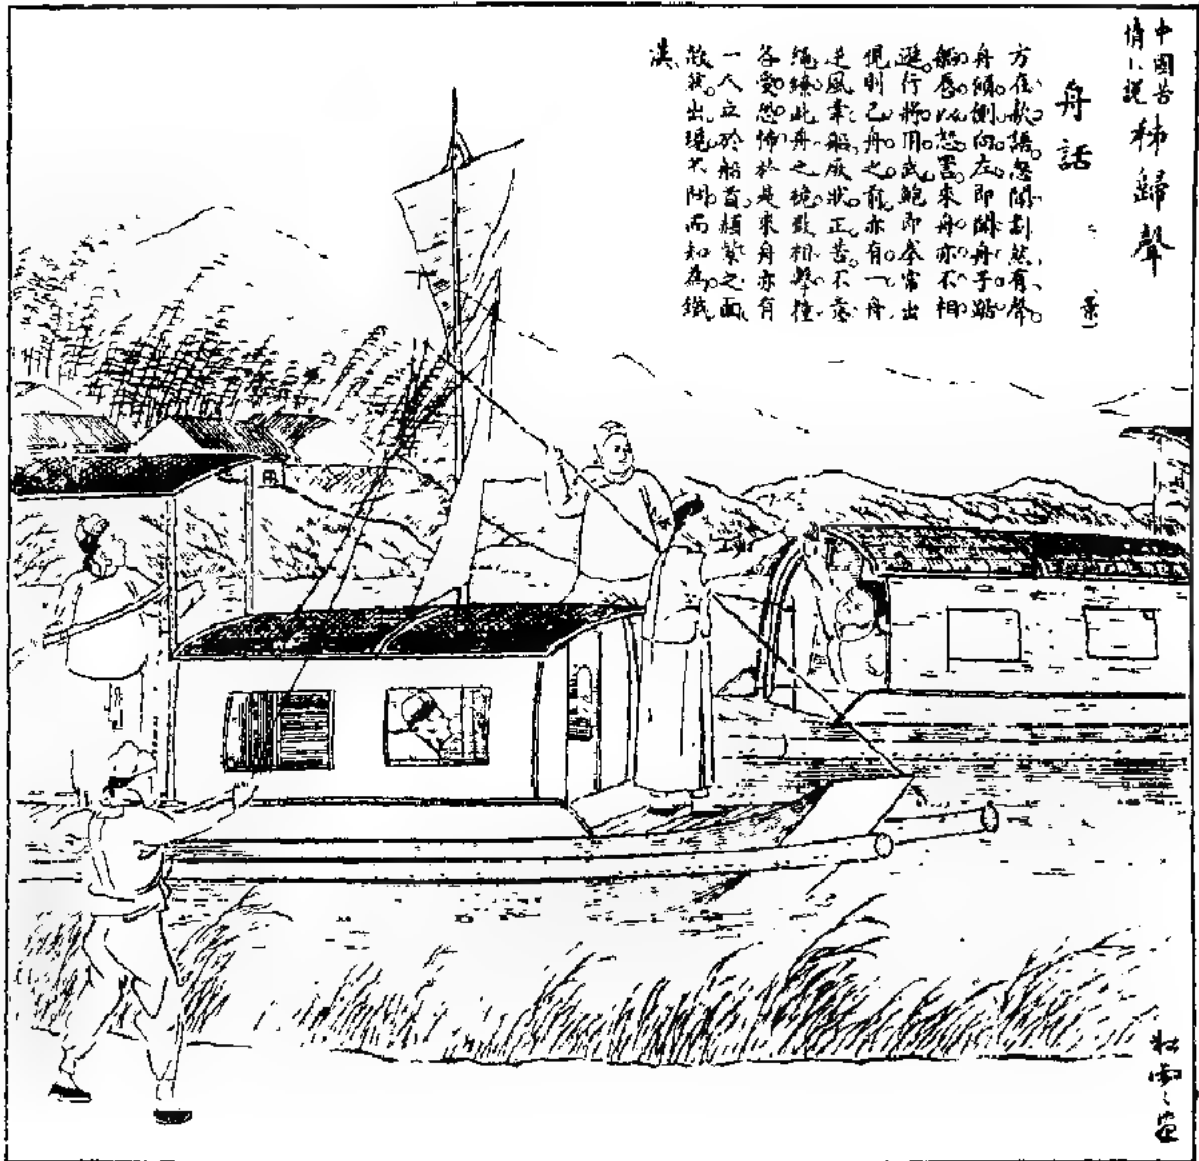 中國苦
情小說
秭歸聲
舟話
方在款語。忽聞劃然有聲。
舟傾側向左即聞舟子踏
船唇以怒詈來舟亦不相
遜。行將用武鮑即奉常出
視則己舟之前亦有一舟
逆風牽船厥狀正苦。不意
繩纜此舟之桅數相擊撞
各變恐怖於是來舟亦有
一人立於船首頳紫之面
故我出現不問而知為鐵
漢